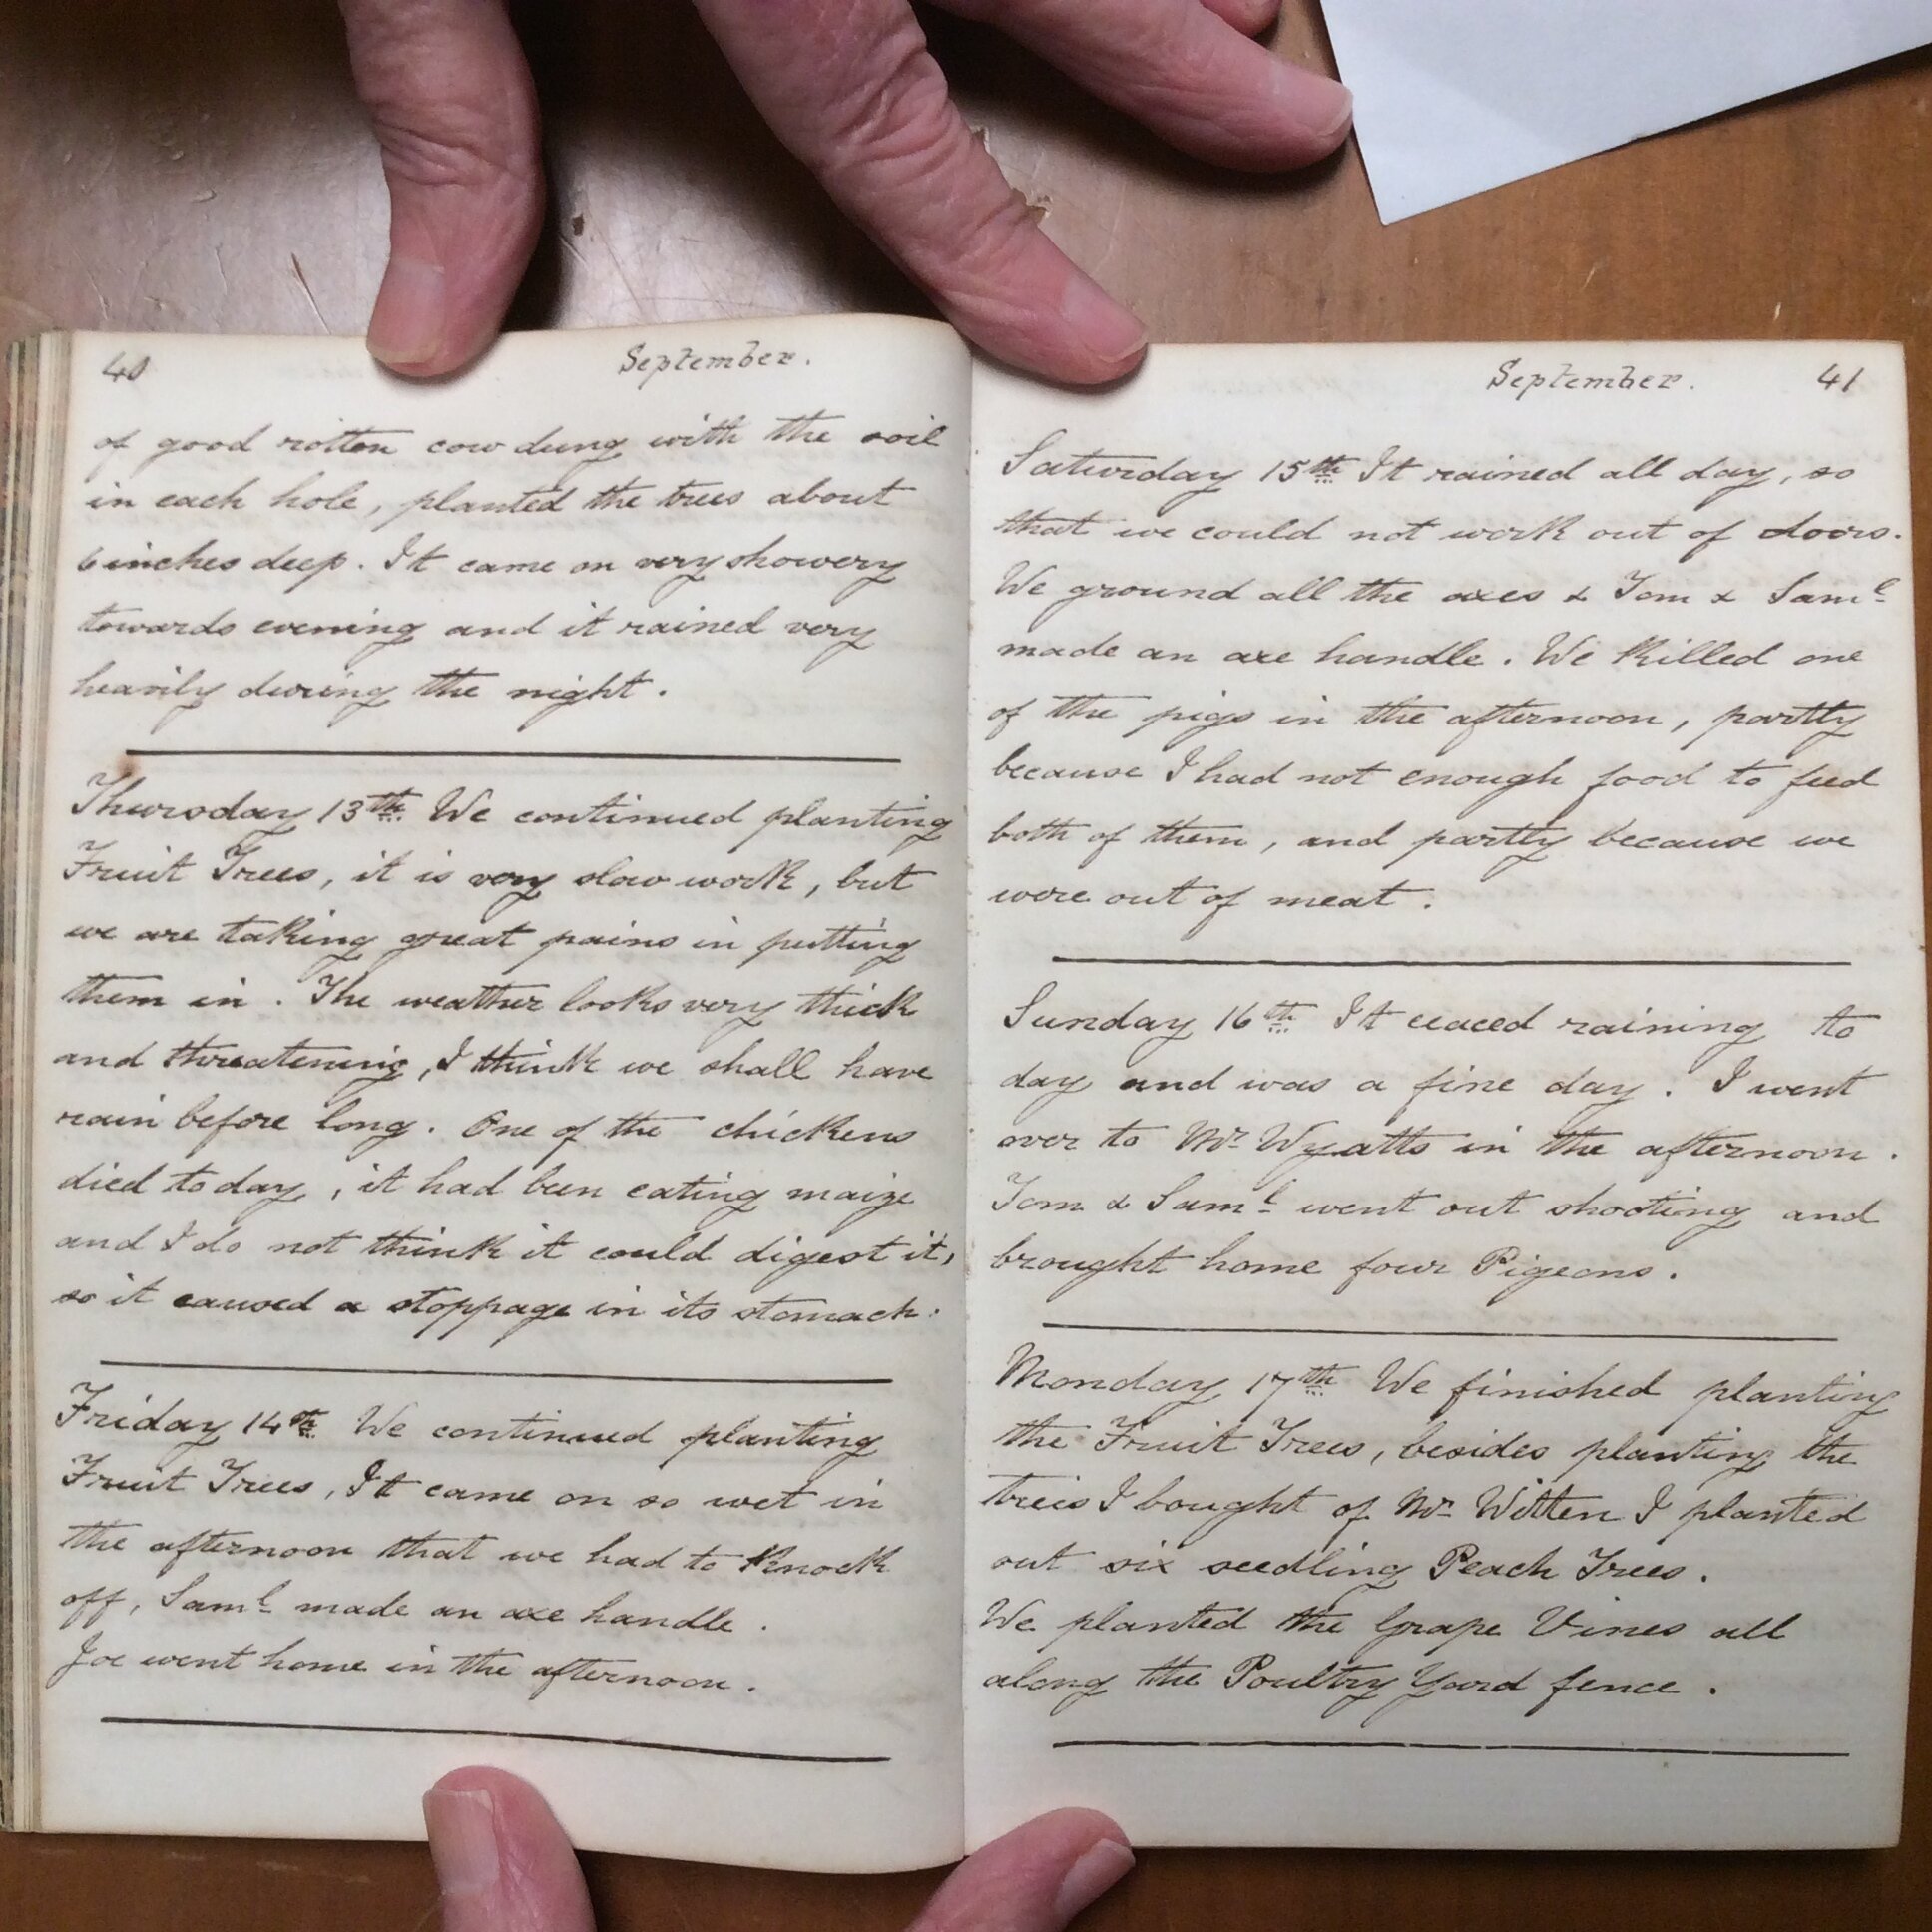 40 September.
of good rotten cow dung with the soil
in each hole, planted the trees about
6 inches deep. It came on very showery
towards evening and it rained very
heavily during the night.
Thursday 13th. We continued planting
Fruit Trees, it is very slow work, but
we are taking great pains in putting
them in. The weather looks very thick
and threatening, I think we shall have
rain before long. One of the chickens
died to day, it had been eating maize
and I do not think it could digest it,
so it caused a stoppage in its stomach.
Friday 14th. We continued planting
Fruit Trees, It came on so wet in
the afternoon that we had to knock
off, Saml. made an axe handle.
Joe went home in the afternoon.
September. 41
Saturday 15th. It rained all day, so
that we could not work out of doors.
We ground all the axes & Tom & Saml.
made an axe handle. We killed one
of the pigs in the afternoon, partly
because I had not enough food to feed
both of them, and partly because we
were out of meat.
Sunday 16th. It ceaced raining to
day and was a fine day. I went
over to Mr. Wyatts in the afternoon.
Tom & Saml. went out shooting and
brought home four Pigeons.
Monday 17th. We finished planting
the Fruit Trees, besides planting the
trees I bought of Mr. Witten I planted
out six seedling Peach Trees.
We planted the Grape Vines all
along the Poultry Yard fence.